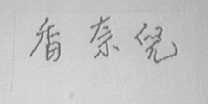 香奈儿